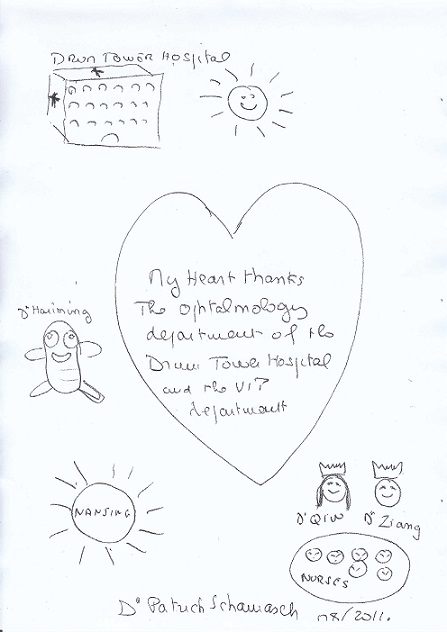 DRUM TOWER HOSPITAL
My Heart thanks
The ophtalmology
department of the
Drum Tower Hospital
and the VIP
department
Dr Haiming
NANJING
Dr QIW
Dr Ziang
NURSES
Dr Patrick Schamasch
08/2011.